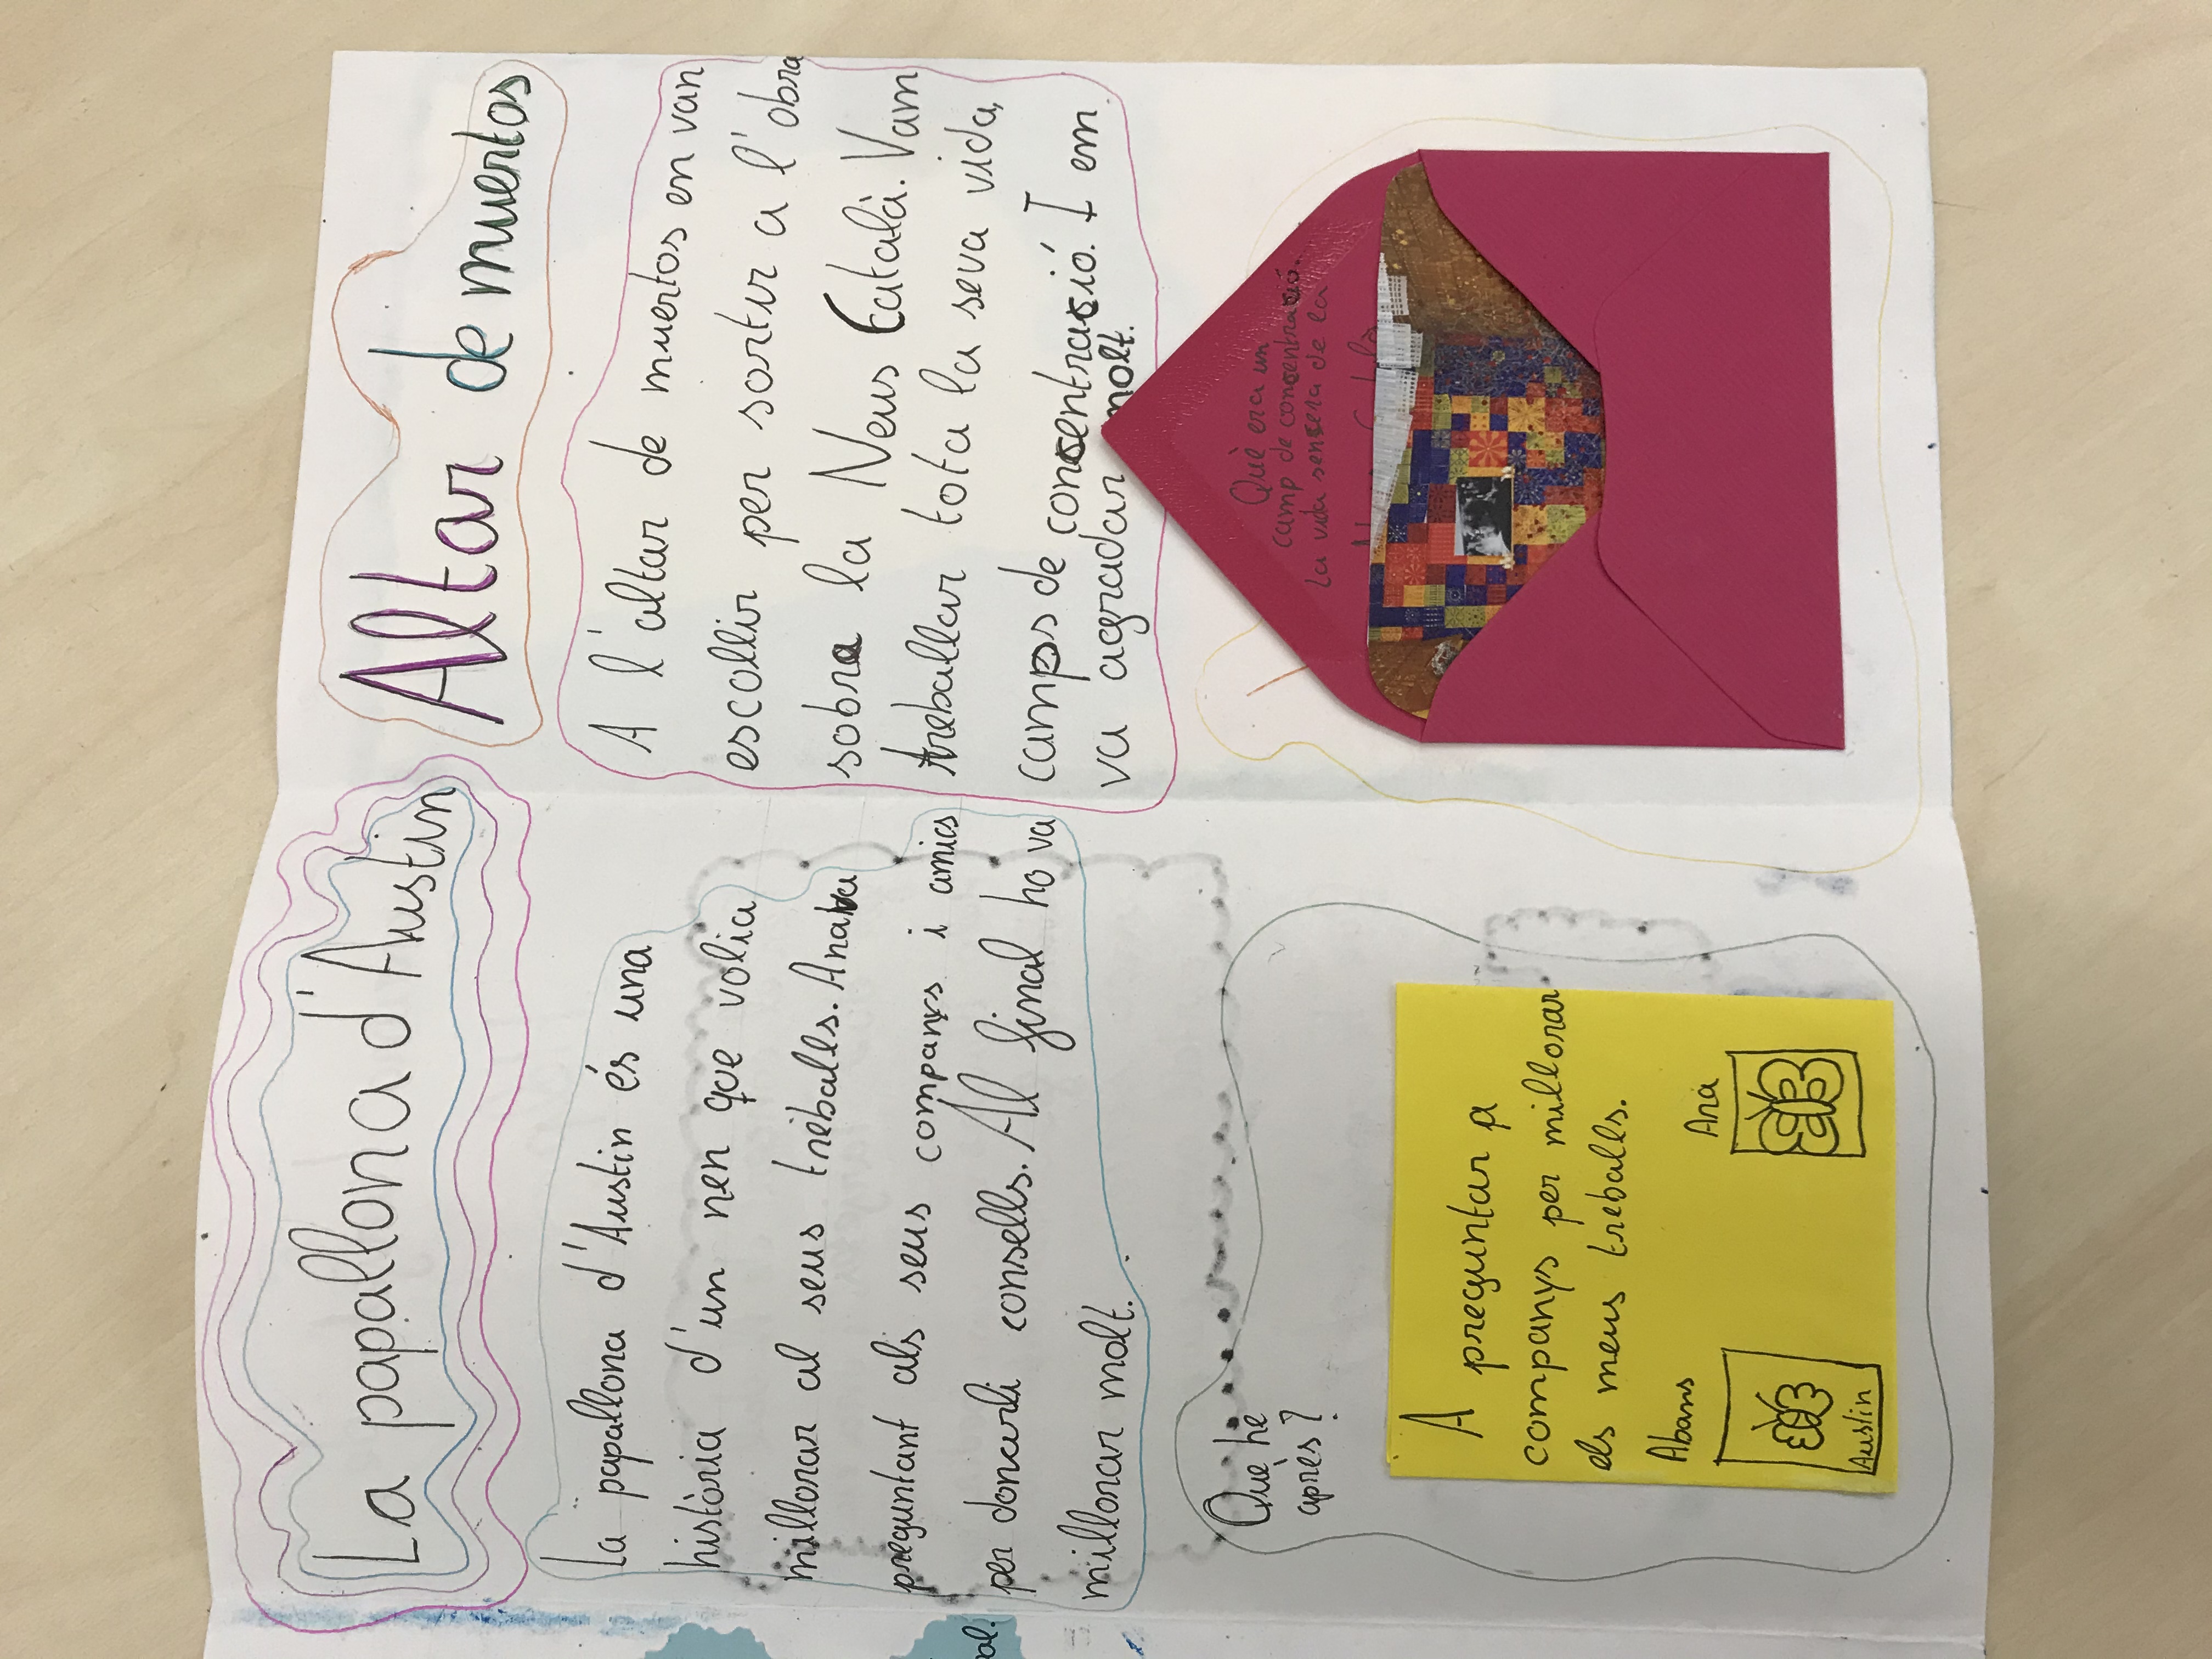 La papallona d'Austin
La papallona d'Austin és una
història d'un nen que volia
millorar al seus treballs. Anava
preguntant als seus companys i amics
per donarli consells. Al final ho va
millorar molt.
Què he
après?
A preguntar a
companys per millorar
els meus treballs.
Abans
Ara
Austin
Altar
de muertos
A l'altar de muertos en van
escollir per sortir a l'obra
sobra la Neus Català. Vam
treballar tota la seva vida,
camps de concentració. I em
va agradar molt.
Què era un
camp de concentració.
La vida sensera de la
al.